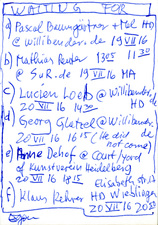 WAITING FOR
a) Pascal Baumgärtner + Mel HD
@ Willibender.de 19 VII 16
b) Mathias Reder 1305 11 30
@ SuR.de 19 VII 16 MA
c) Lucien Loeb @ Willibender
20 VII 16 1430 HD de
d) Georg Glatzel @ Willibender
20 VII 16 1615 (He did not come)
e) Anne Dehof @ Court/yard
of Kunstverein Heidelberg
20 VII 16 1815
f) Klaus Kehrer HD Wieblingen
20 VII 16 20